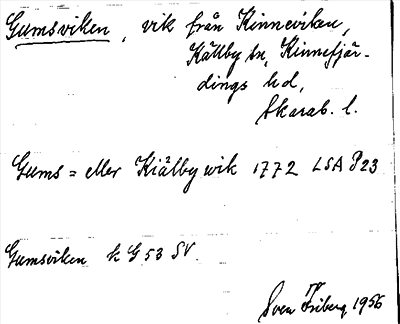 Gumsviken, vik från Kinneviken,
Källby sn, Kinnefjär-
dings hd,
Skarab. l.
Gums= eller Kiälby wik 1772 LSA P23
Gumsviken k G 53 SV.
Sven Friberg 1956